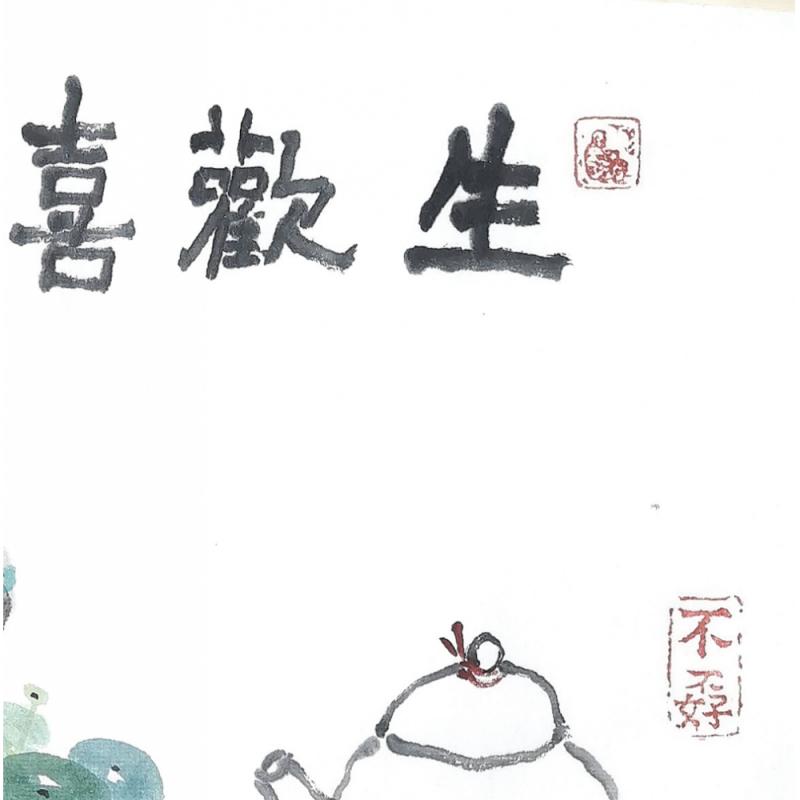 生歡喜
不孬